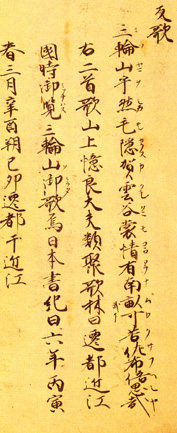 反歌
三輪山乎然毛隠賀雲谷裳情有南畝可苦佐布倍思哉
右二首歌山上憶良大夫類聚歌林曰遷都近江
國時御覧三輪山御歌焉日本書紀曰六年丙寅
春三月辛酉朔己卯遷都于近江